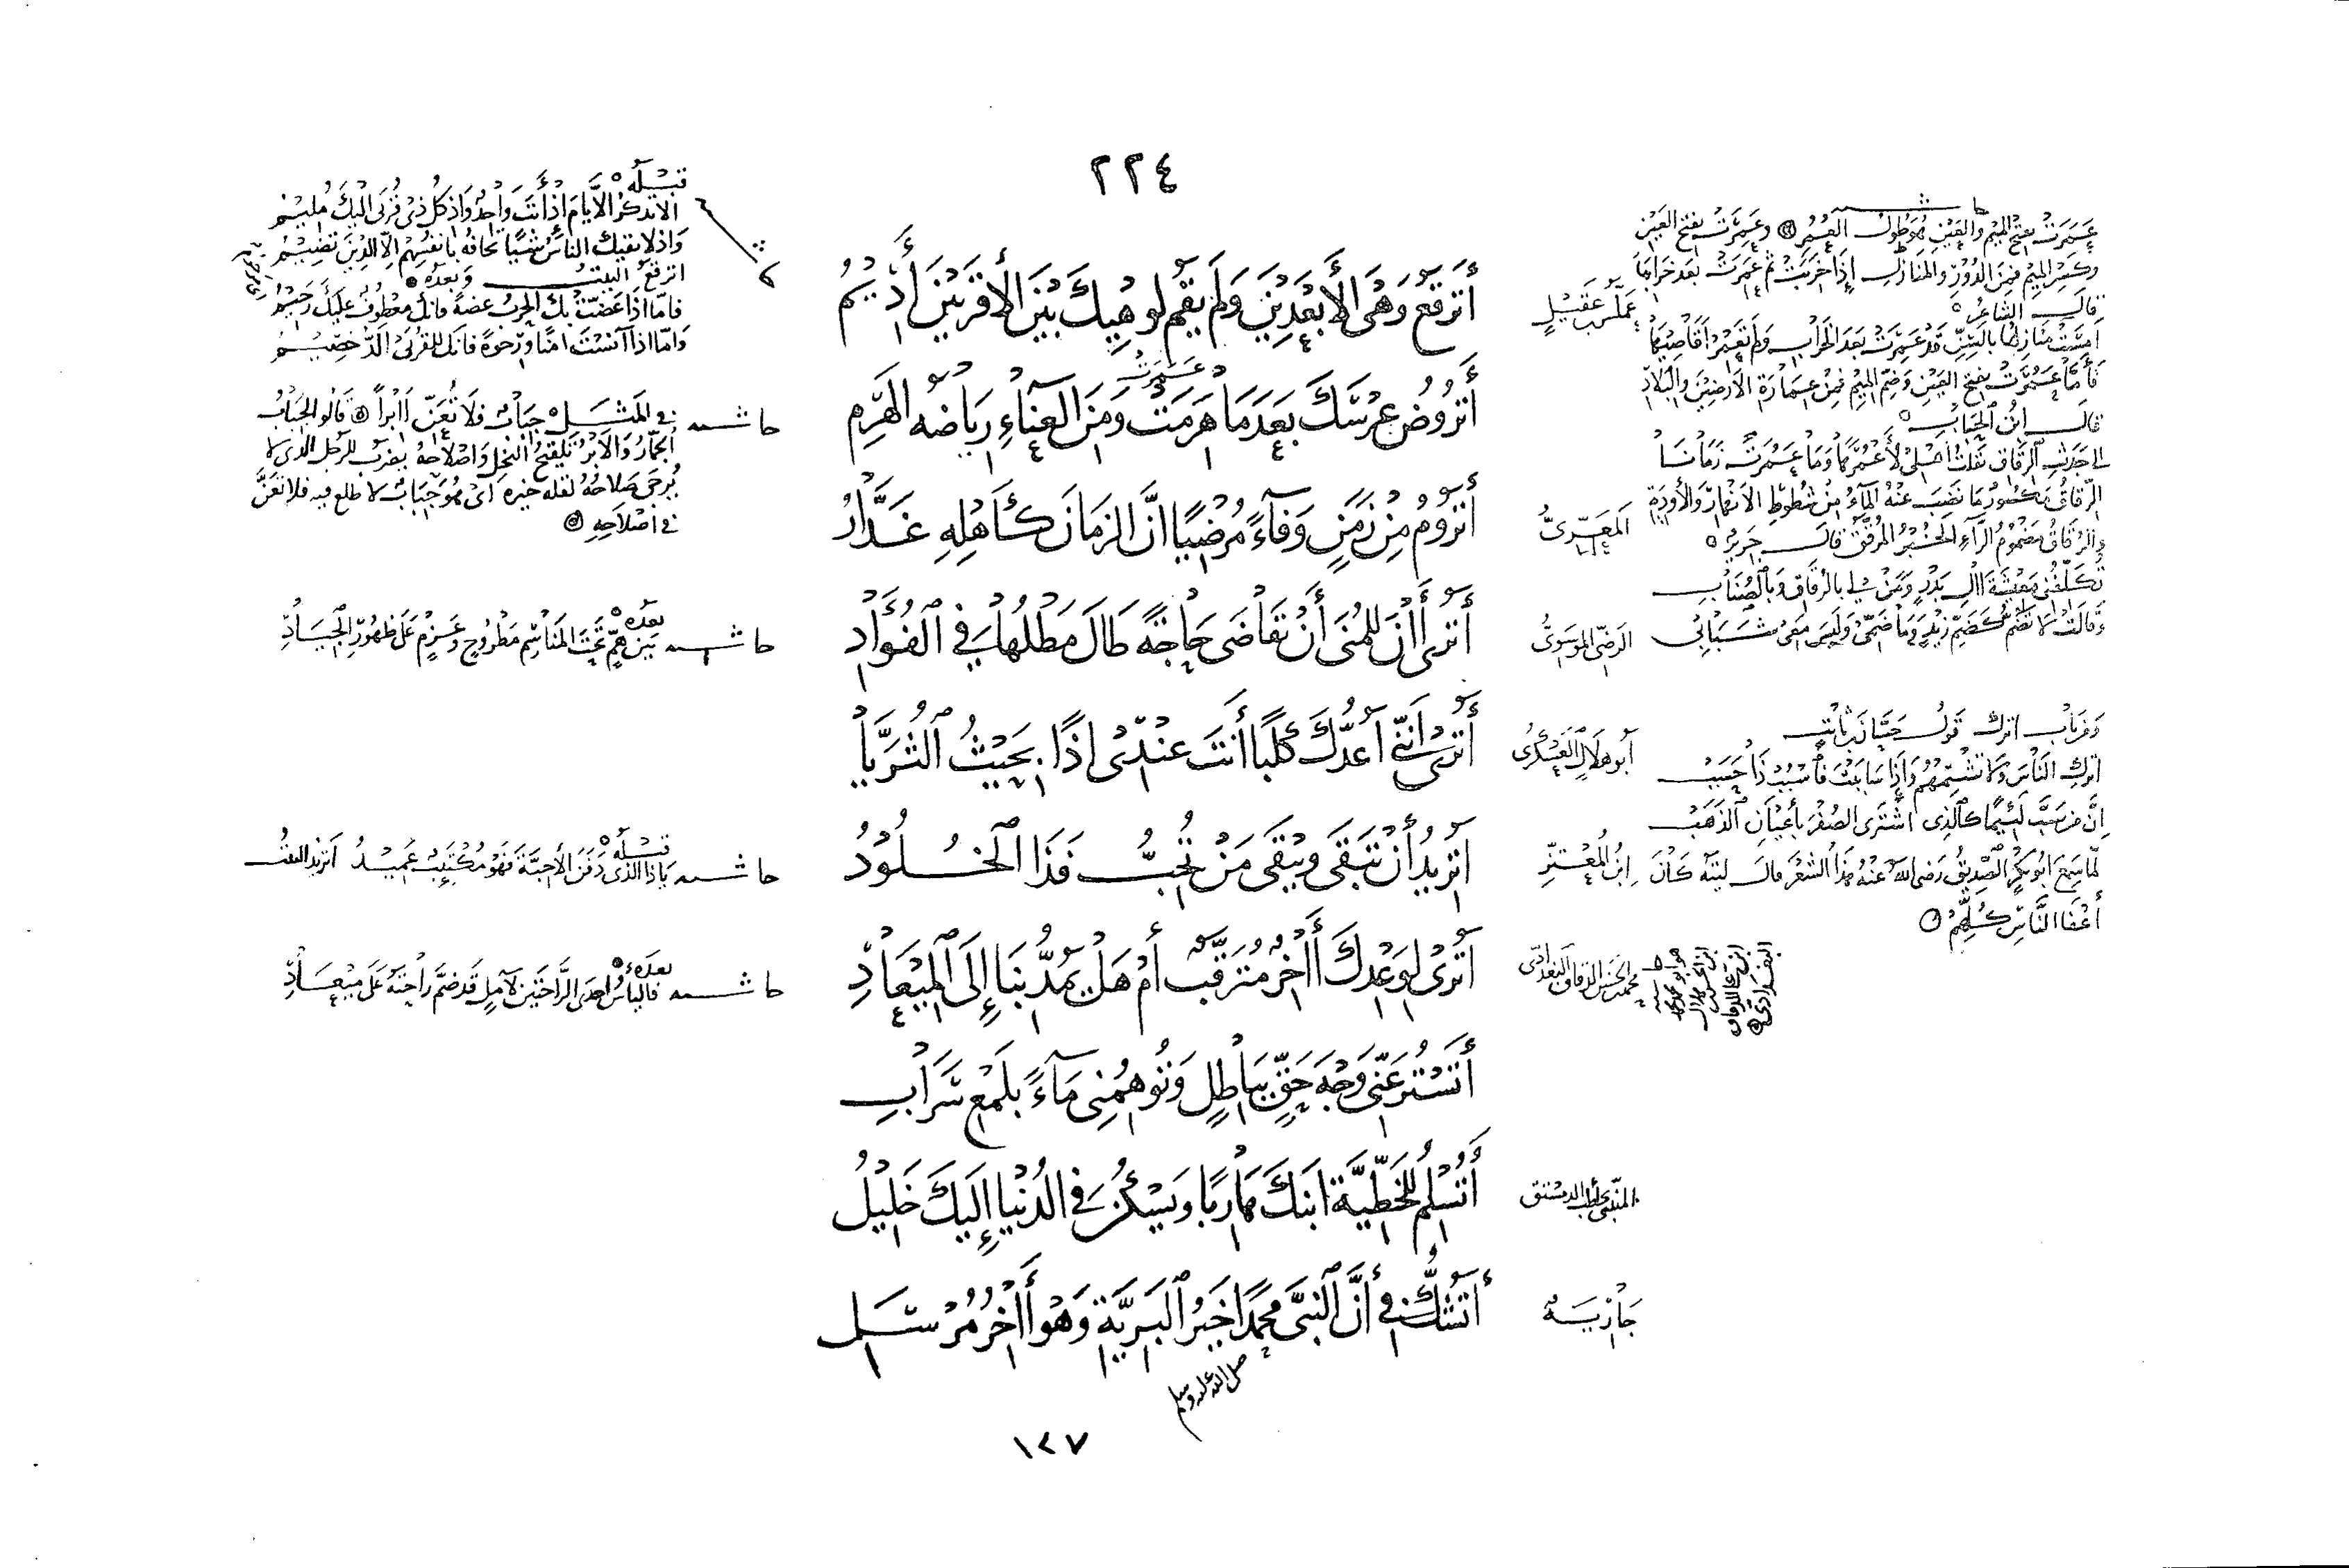 ٢٢٤
أَتَرْقَعُ وَهْيَ الأَبْعَدِينَ وَلَمْ يَقُمْ لِوَهْيِكَ بَيْنَ الأَقْرَبِينَ أَدِيمُ
عَمِرَتْ
أَتَرُوضُ عِرْسَكَ بَعْدَمَا هَرِمَتْ وَمِنَ العَنَاءِ رِيَاضَةُ الهَرِمِ
أَتَرُومُ مِنْ زَمَنٍ وَفَاءً مُرْضِيًا إِنَّ الزَمَانَ كَأَهْلِهِ غَدَّارُ
أَتُرَى أَنَّ لِلْمُنَى أَنْ تَقَاضَى حَاجَةً طَالَ مَطْلُهَا فِي الفُؤَادِ
أَتُرَى أَنَّنِي أَعُدُّكَ كَلْبًا أَنْتَ عِنْدِي إِذًا بِحَيْثُ الثُرَيَّا
أَتُرِيدُ أَنْ تَبْقَى وَيَبْقَى مَنْ تُحِبُّ فَذَا الخُلُودُ
أَتُرَى لِوَعْدِكَ آخِرٌ مُتَرَقَّبٌ أَمْ هَلْ يُمَدُّ بِنَا إِلَى المِيْعَادِ
أَتَسْتُرُ عَنِّي وَجْهَ حَقٍّ بِبَاطِلٍ وَتُوهِمُنِي مَاءً بِلَمْعِ سَرَابِ
أَتُسْلِمُ لِلْخَطِّيَّةِ ابْنَكَ هَارِبًا وَيَسْكُنَ فِي الدُنْيَا إِلَيْكَ خَلِيْلُ
أَتَشُكُّ فِي أَنَّ النَبِيَّ مُحَمَّدًا خَيْرُ البَرِيَّةِ وَهُوَ آخِرُ مُرْسَلِ
صلى الله عليه وسلم
١٢٧
عَمَلَّس بن عَقِيْلٍ
المَعَرِّيُّ
الرَضِيُّ المُوسَوِيُّ
أَبُو هِلَالٍ العَسْكَرِيُّ
ابْنُ المُعْتَزِّ
محمد بن الحسن البغدادي
المتنبي يخاطب الدمستق
جَارِيَةٌ
حاشية
عَمَرَتْ بِفَتْحِ المِيْمِ وَالعَيْنِ هُوَ طُولُ العُمُرِ وَعَمِرَتْ بِفَتْحِ العَيْنِ
وَكَسْرِ المِيْمِ فَمِنَ الدُوْرِ وَالمَنَازِلِ إِذَا خَرِبَتْ ثُمَّ عَمِرَتْ بَعْدَ خَرَابِهَا
قَالَ الشَاعِرُ
أَمْسَتْ مَنَازِلُهَا بِالسِّرِّ قَدْ عَمِرَتْ بَعْدَ الخَرَابِ وَلَمْ تَعْمُرْ أَقَاصِيْهَا
فَأَمَّا عَمُرَتْ بِفَتْحِ العَيْنِ وَضَمِّ المِيْمِ فَمِنْ عِمَارَةِ الأَرَضِيْنَ وَالبِلَادِ
قَالَ ابْنُ الحُبَابِ
الرَقَاقُ مَكْسُورٌ مَا نَضَبَ عَنْهُ المَاءُ مِنْ شُطُوطِ الأَنْهَارِ وَالأَوْدِيَةِ
وَالرُقَاقُ مَضْمُومُ الرَاءِ الخُبْزُ المُرَقَّقُ قَالَ جَرِيْرٌ
تُكَلِّفُنِي مَعِيْشَةَ آلِ بَدْرٍ وَمَنْ لِي بِالرُقَاقِ وَبِالصِّنَابِ
وَقَالَتْ لَا تَضُمُّ كَضَمِّ زَيْدٍ وَمَا ضَمِّي وَلَيْسَ مَعِي شَبَابِي
وَمِنْ بَابِ اترك قَوْلُ حَسَّانَ بْنِ ثَابِتٍ
اتْرُكِ النَاسَ وَلَا تَشْتِمْهُمُ وَإِذَا سَابَبْتَ فَاسْبُبْ ذَا حَسَبْ
إِنَّ مَنْ سَبَّ لَئِيْمًا كَالَّذِي اشْتَرَى الصُفْرَ بِأَعْيَانِ الذَهَبْ
لَمَّا سَمِعَ أَبُو بَكْرٍ الصِّدِيْقُ رَضِيَ اللَّهُ عَنْهُ هَذَا الشِعْرَ قَالَ لَيْتَهُ كَانَ
أَعْفَا النَّاسَ كُلَّهُمْ
قَبْلَهُ
أَلَا تَذْكُرُ الأَيَّامَ إِذْ أَنْتَ وَاحِدٌ وَإِذْ كُلُّ ذِي قُرْبَى إِلَيْكَ مُلِيْمُ
وَإِذْ لَا يَقِيْكَ النَاسُ شَيْئًا تَخَافُهُ بِأَنْفُسِهِمْ إِلَّا الَّذِيْنَ تَضِيْمُ
أَتَرْقَعُ البيت وَبَعْدَهُ
فَأَمَّا إِذَا عَضَّتْ بِكَ الحَرْبُ عَضَّةً فَإِنَّكَ مَعْطُوفٌ عَلَيْكَ رَحِيْمُ
وَأَمَّا إِذَا آنَسْتَ أَمْنًا وَرَخْوَةً فَإِنَّكَ لِلْقُرْبَى أَلَدُّ خَصِيْمُ
حاشية
فِي المَثَلِ جَبَابٌ فَلَا تُعَنِّ أَبْرًا قَالُوا الجَبَابُ
الجُمَّارُ وَالأَبْرُ تَلْقِيْحُ النَخْلِ وَإِصْلَاحُهُ يُضْرَبُ لِلرَجُلِ الَّذِي لَا
يُرْجَى صَلَاحُهُ لِقِلَّةِ خَيْرِهِ أَيْ هُوَ جَبَابٌ لَا طَلْعَ فِيْهِ فَلَا تُعَنَّ
فِي إِصْلَاحِهِ
حاشية
بَعْدَهُ
بَيْنَ هَمٍّ تَحْتَ المَنَاسِمِ مَطْرُوحٍ وَعَزْمٍ عَلَى ظُهُورِ الجِيَادِ
حاشية
قَبْلَهُ
يَا ذَا الَّذِي دَفَنَ الأَحِبَّةَ فَهُوَ مُكْتَئِبٌ عَمِيْدُ أَتُرِيْدُ البيت
حاشية
بَعْدَهُ
فَاليَأْسُ إِحْدَى الرَّاحَتَيْنِ لِآمِلٍ قَدْ ضَمَّ رَاحَتَهُ عَلَى مِيْعَادِ